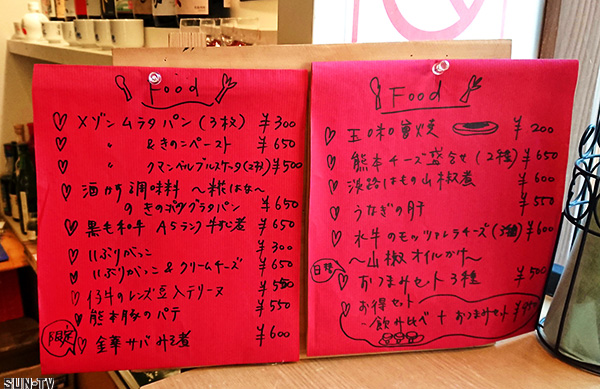 Food
♡ メゾンムラタパン (3枚) ¥300
♡ 〃 &きのこペースト ¥650
♡ 〃 クマンベルブルスケータ(2切) ¥500
♡ 酒gh 調味料 〜糀はな〜
のきのポテグラタパン ¥650
♡ 黒毛和牛 A5ランク牛すじ煮 ¥650
♡ いぶりがっこ ¥300
♡ いぶりがっこ&クリームチーズ ¥650
♡ 仔牛のレンズ豆入テリーヌ ¥550
♡ 熊本豚のパテ ¥550
限定
♡ 金華サバみそ煮 ¥600
Food
♡ 五〇和 ¥200
♡ 熊本チーズ盛合せ (2種) ¥650
♡ 淡路はもの山椒煮 ¥600
♡ うなぎの肝 ¥550
♡ 水牛のモッツァレラチーズ(3種) ¥600
〜山椒オイルがけ〜
日替
♡ おつまみセット3種 ¥500
♡ お得セット
飲み比べ + おつまみセット ¥950
SUN-TV